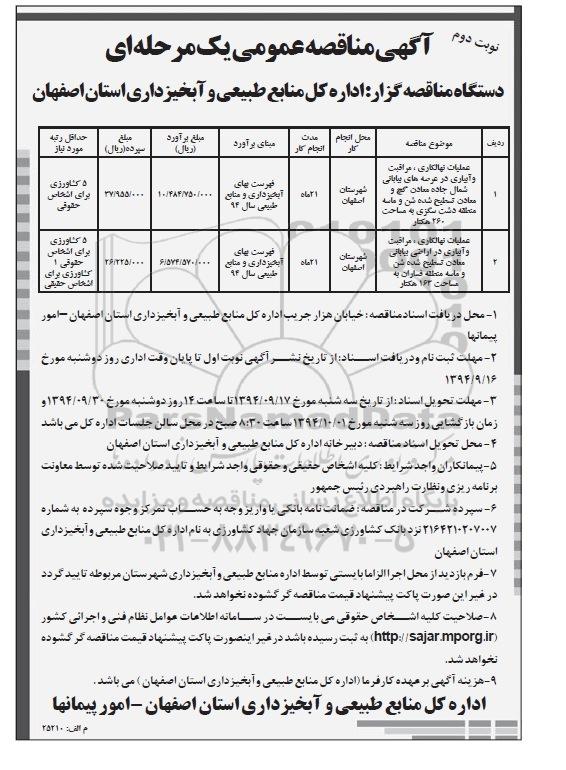 نوبت دوم
آگهی مناقصه عمومی یک مرحله‌ای
دستگاه مناقصه گزار: اداره کل منابع طبیعی و آبخیزداری استان اصفهان
ردیف
موضوع مناقصه
محل انجام کار
مدت انجام کار
مبنای برآورد
مبلغ برآورد (ریال)
مبلغ سپرده (ریال)
حداقل رتبه مورد نیاز
۱
عملیات نهالکاری ، مراقبت
و آبیاری در عرصه های بیابانی
شمال جاده معادن گچ و
معادن تسطیح شده شن و ماسه
منطقه دشت سگزی به مساحت
۲۶۰ هکتار
شهرستان اصفهان
۲۱ماه
فهرست بهای
آبخیزداری و منابع
طبیعی سال ۹۴
۱۰/۴۸۴/۷۵۰/۰۰۰
۳۷/۹۵۵/۰۰۰
۵ کشاورزی
برای اشخاص
حقوقی
۲
عملیات نهالکاری ، مراقبت
و آبیاری در اراضی بیابانی
معادن تسطیح شده شن
و ماسه منطقه فساران به
مساحت ۱۶۳ هکتار
شهرستان اصفهان
۲۱ماه
فهرست بهای
آبخیزداری و منابع
طبیعی سال ۹۴
۶/۵۷۴/۵۷۰/۰۰۰
۲۶/۲۲۵/۰۰۰
۵ کشاورزی
برای اشخاص
حقوقی ۱
کشاورزی برای
اشخاص حقیقی
۱- محل دریافت اسناد مناقصه : خیابان هزار جریب اداره کل منابع طبیعی و آبخیزداری استان اصفهان –امور
پیمانها
۲- مهلت ثبت نام ودریافت اسناد: از تاریخ نشر آگهی نوبت اول تا پایان وقت اداری روز دوشنبه مورخ
۱۳۹۴/۹/۱۶
۳- مهلت تحویل اسناد : از تاریخ سه شنبه مورخ ۱۳۹۴/۰۹/۱۷تا ساعت ۱۴ روز دوشنبه مورخ ۱۳۹۴/۰۹/۳۰ و
زمان بازگشایی روز سه شنبه مورخ ۱۳۹۴/۱۰/۰۱ ساعت ۸:۳۰ صبح در محل سالن جلسات اداره کل می باشد
۴- محل تحویل اسناد مناقصه : دبیرخانه اداره کل منابع طبیعی و آبخیزداری استان اصفهان
۵- پیمانکاران واجد شرایط : کلیه اشخاص حقیقی و حقوقی واجد شرایط و تایید صلاحیت شده توسط معاونت
برنامه ریزی ونظارت راهبردی رئیس جمهور
۶- سپرده شرکت در مناقصه : ضمانت نامه بانکی یا واریز وجه به حساب تمرکز وجوه سپرده به شماره
۲۱۶۴۲۱۰۲۰۷۰۰۷ نزد بانک کشاورزی شعبه سازمان جهاد کشاورزی به نام اداره کل منابع طبیعی و آبخیزداری
استان اصفهان
۷-فرم بازدید از محل اجرا الزاما بایستی توسط اداره منابع طبیعی و آبخیزداری شهرستان مربوطه تایید گردد
در غیر این صورت پاکت پیشنهاد قیمت مناقصه گر گشوده نخواهد شد.
۸-صلاحیت کلیه اشخاص حقوقی می بایست در سامانه اطلاعات عوامل نظام فنی و اجرائی کشور
(http://sajar.mporg.ir) به ثبت رسیده باشد در غیر اینصورت پاکت پیشنهاد قیمت مناقصه گر گشوده
نخواهد شد.
۹-هزینه آگهی بر عهده کارفرما (اداره کل منابع طبیعی و آبخیزداری استان اصفهان ) می باشد .
اداره کل منابع طبیعی و آبخیزداری استان اصفهان –امور پیمانها
م الف: ۲۵۲۱۰
ParsNamadData
پایگاه اطلاع رسانی مناقصه و مزایده
۰۲۱-۸۸۳۴۹۶۷۰-۵